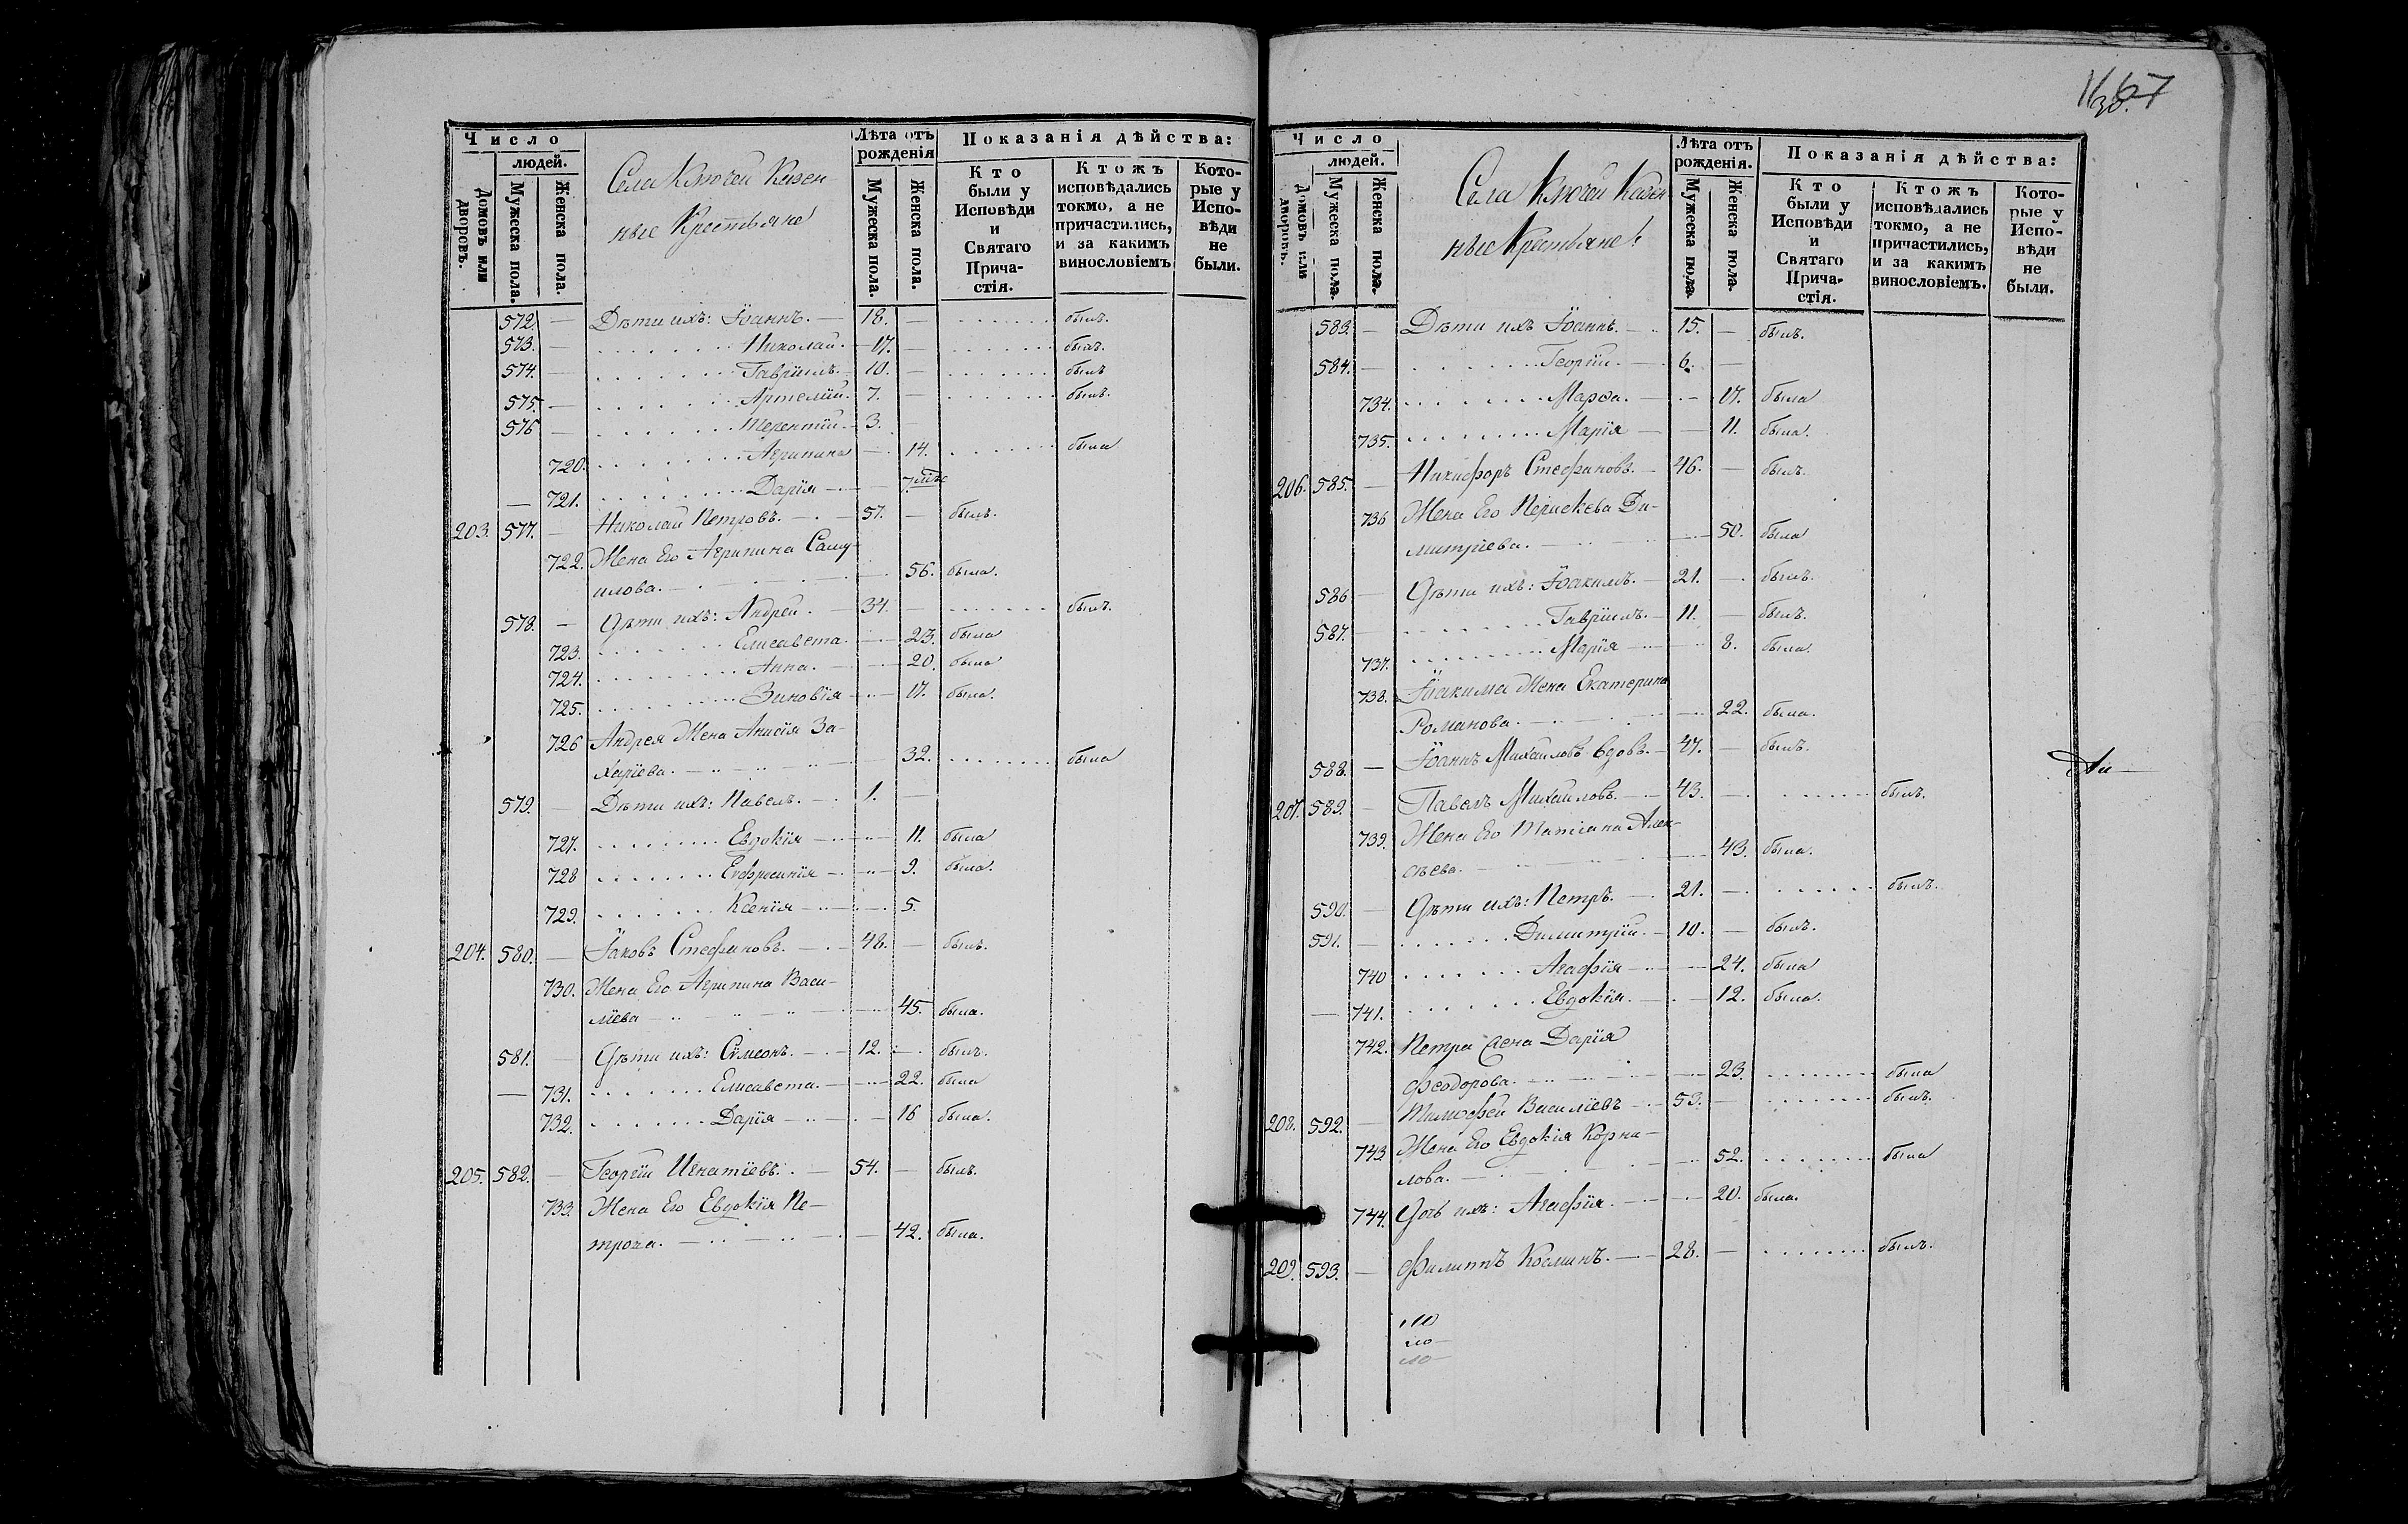 1667
30.
Число
людей.
Домовъ или дворовъ.
Мужеска пола.
Женска пола.
Села Ключей Казен-
ные Крестьяне
Лѣта отъ рожденія
Мужеска пола.
Женска пола.
Показанія дѣйства:
Кто были у Исповѣди и Святаго Прича-стія.
Ктожъ исповѣдались токмо, а не причастились, и за какимъ винословіемъ
Кото-рые у Испо-вѣди не были.
572. — Дѣти ихъ: Іоаннъ. — 18. — былъ.
573. — Николай. — 17. — былъ.
574. — Гавріилъ. 10. — былъ
575. — Артемій. 7. — былъ.
576 — Терентій. 3.
720. Агрипина — 14. была
721. Дарія — 7.
203. 577. — Николай Петровъ. — 57. — былъ.
722. Жена Его Агрипина Саму-
илова. — 56. была.
578. — Дѣти ихъ: Андрей. — 34. — былъ.
723. Елисавета. — 23. была
724. Анна. — 20. была
725. Зиновія — 17. была.
726 Андрея Жена Анисія За-
харіева. — 32. была
579. — Дѣти ихъ: Павелъ. — 1. —
727. Евдокія — 11. была
728 Евфросинія — 9. была.
729. Ксенія — 5.
204. 580. — Іаковъ Стефановъ. — 48. — былъ.
730. Жена Его Агрипина Васи-
ліева — 45. была.
581. — Дѣти ихъ: Сѵмеонъ. — 12. — былъ.
731. Елисавета. — 22. была
732. Дарія — 16 была.
205. 582. — Георгій Игнатіевъ. — 54. — былъ.
733. Жена Его Евдокія Пе-
трова. — 42. была.
Число
людей.
Домовъ или дворовъ.
Мужеска пола.
Женска пола.
Села Ключей Казен-
ные Крестьяне
Лѣта отъ рожденія.
Мужеска пола.
Женска пола.
Показанія дѣйства:
Кто были у Исповѣди и Святаго Прича-стія.
Ктожъ исповѣдались токмо, а не причастились, и за какимъ винословіемъ.
Кото-рые у Испо-вѣди не были.
583. — Дѣти ихъ Іоаннъ. — 15. — былъ.
584. — Георгій. — 6. —
734. Марѳа. — 17. была
735. Марія — 11. была.
206. 585. — Никифоръ Стефановъ. — 46. — былъ.
736 Жена Его Перискева Ди-
митріева. — 50. была
586 — Дѣти ихъ: Іоакимъ. — 21. — былъ.
587. — Гавріилъ. — 11. — былъ.
737. Марія — 8. была.
738. Іоакима Жена Екатерина
Романова. — 22. была.
588. — Іоаннъ Михаиловъ вдовъ. — 47. — былъ.
207. 589. — Павелъ Михаиловъ. — 43. — былъ.
739. Жена Его Татіана Алек-
сѣева. — 43. была.
590. — Дѣти ихъ: Петръ. — 21. — былъ.
591. — Димитрій. — 10. — былъ.
740 Агафія — 24. была
741. Евдокія. — 12. была.
742. Петра Жена Дарія
Феодорова. — 23. была
208. 592. — Тимофей Василіевъ — 53. — былъ.
743 Жена Его Евдокія Корни-
лова. — 52. была
744. Дочь ихъ: Агафія. — 20. была.
209. 593. — Филиппъ Косминъ. — 28. — былъ.